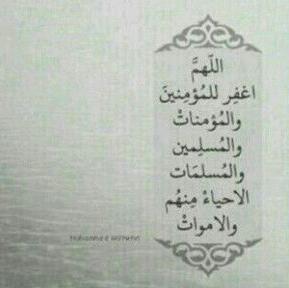 اللّهمَّ
اغفِر للمُؤمِنينَ
والمُؤمناتْ
والمُسلِمين
والمُسلمَات
الاحياءْ مِنهُم
والامواتْ